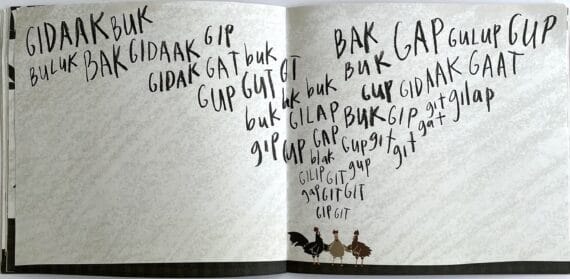 GIDAAK BUK
BULUK BAK GIDAAK GIP
GIDAK GAT buk
GUP GUT GT
buk buk
buk GILAP
gip GUP GAP
blak
BAK GAP GULUP GUP
BUK GIDAAK GAAT
GUP
BUK GIP git gilap
GUP git gat
git
GILIP GIT gup
gap GIT GIT
GIP GIT